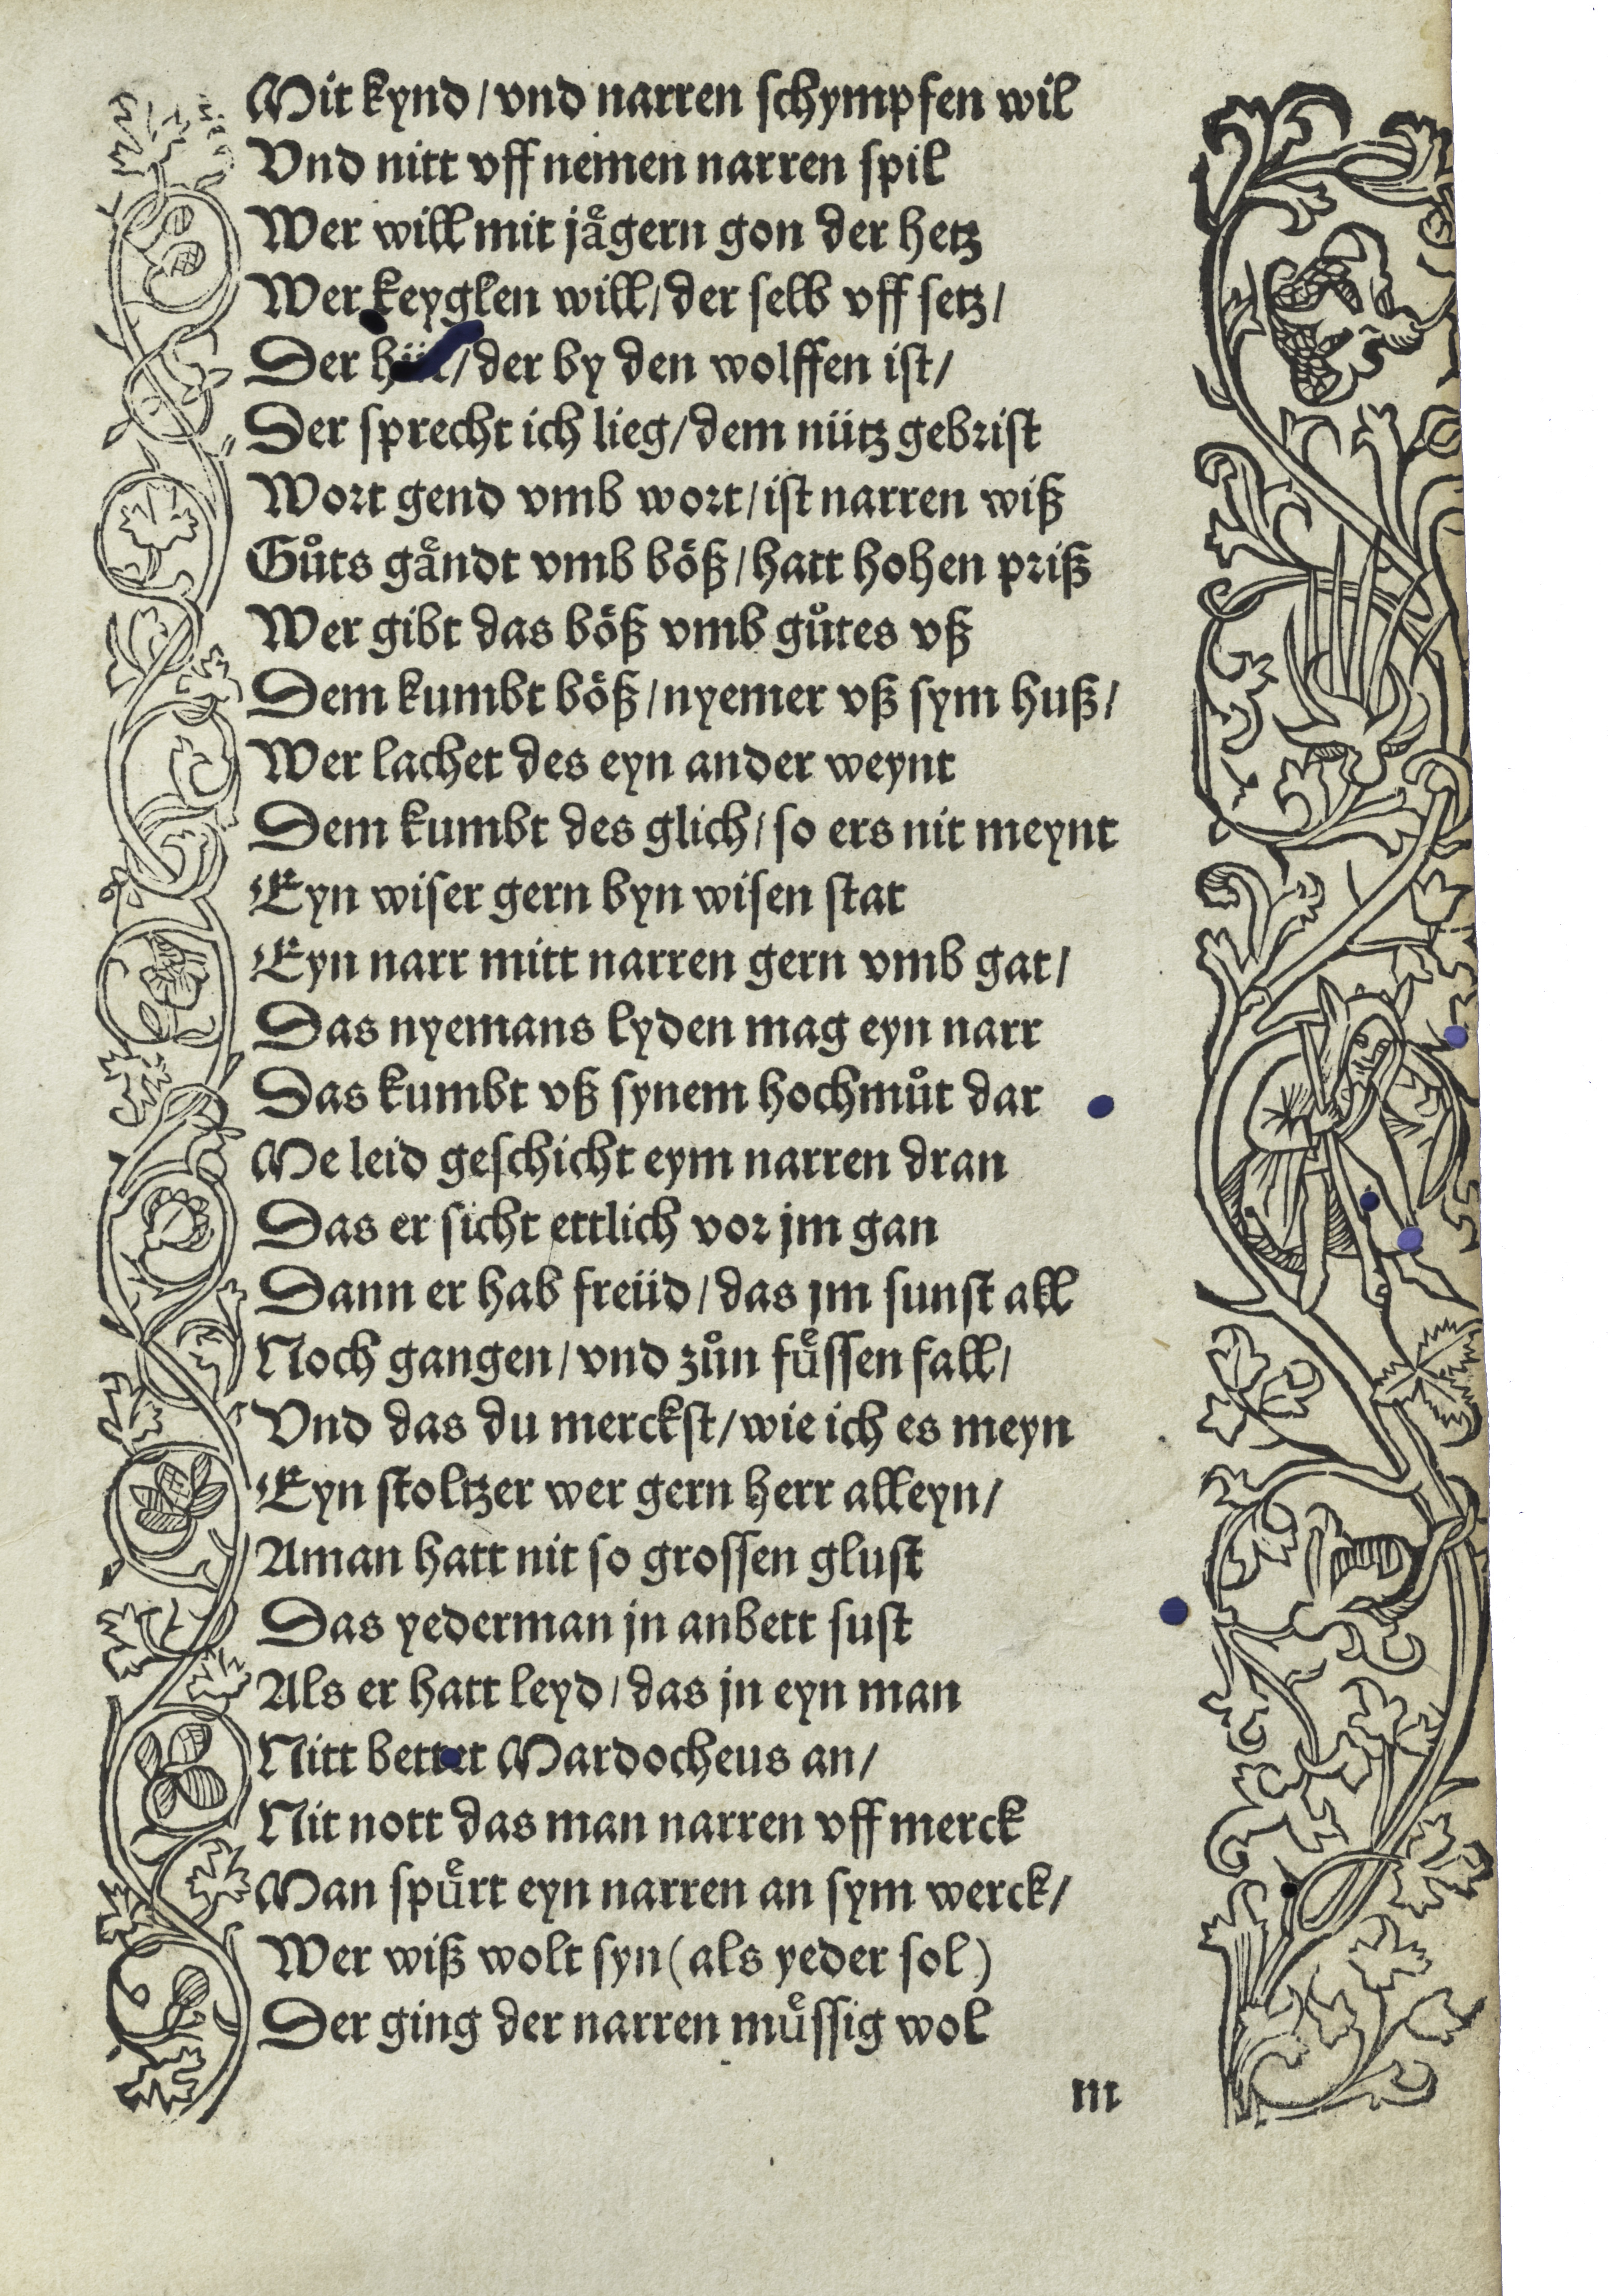 Mit kynd / vnd narren schympfen wil
Vnd nitt vff nemen narren spil
Wer will mit jaͤgern gon der hetz
Wer keyglen will / der selb vff setz /
Der / der by den wolffen ist /
Der sprecht ich lieg / dem nütz gebrist
Wort gend vmb wort / ist narren wiß
Guͦts gaͤndt vmb boͤß / hatt hohen priß
Wer gibt das boͤß vmb guͦtes vß
Dem kumbt boͤß / nyemer vß sym huß /
Wer lachet des eyn ander weynt
Dem kumbt des glich / so ers nit meynt
Eyn wiser gern byn wisen stat
Eyn narr mitt narren gern vmb gat /
Das nyemans lyden mag eyn narr
Das kumbt vß synem hochmuͦt dar
Me leid geschicht eym narren dran
Das er sicht ettlich vor jm gan
Dann er hab freüd / das jm sunst all
Noch gangen / vnd zuͦn fuͤssen fall /
Vnd das du merckst / wie ich es meyn
Eyn stoltzer wer gern herr alleyn /
Aman hatt nit so grossen glust
Das yederman jn anbett sust
Als er hatt leyd / das jn eyn man
Nitt bettet Mardocheus an /
Nit nott das man narren vff merck
Man spuͤrt eyn narren an sym werck /
Wer wiß wolt syn (als yeder sol)
Der ging der narren muͤssig wol
m